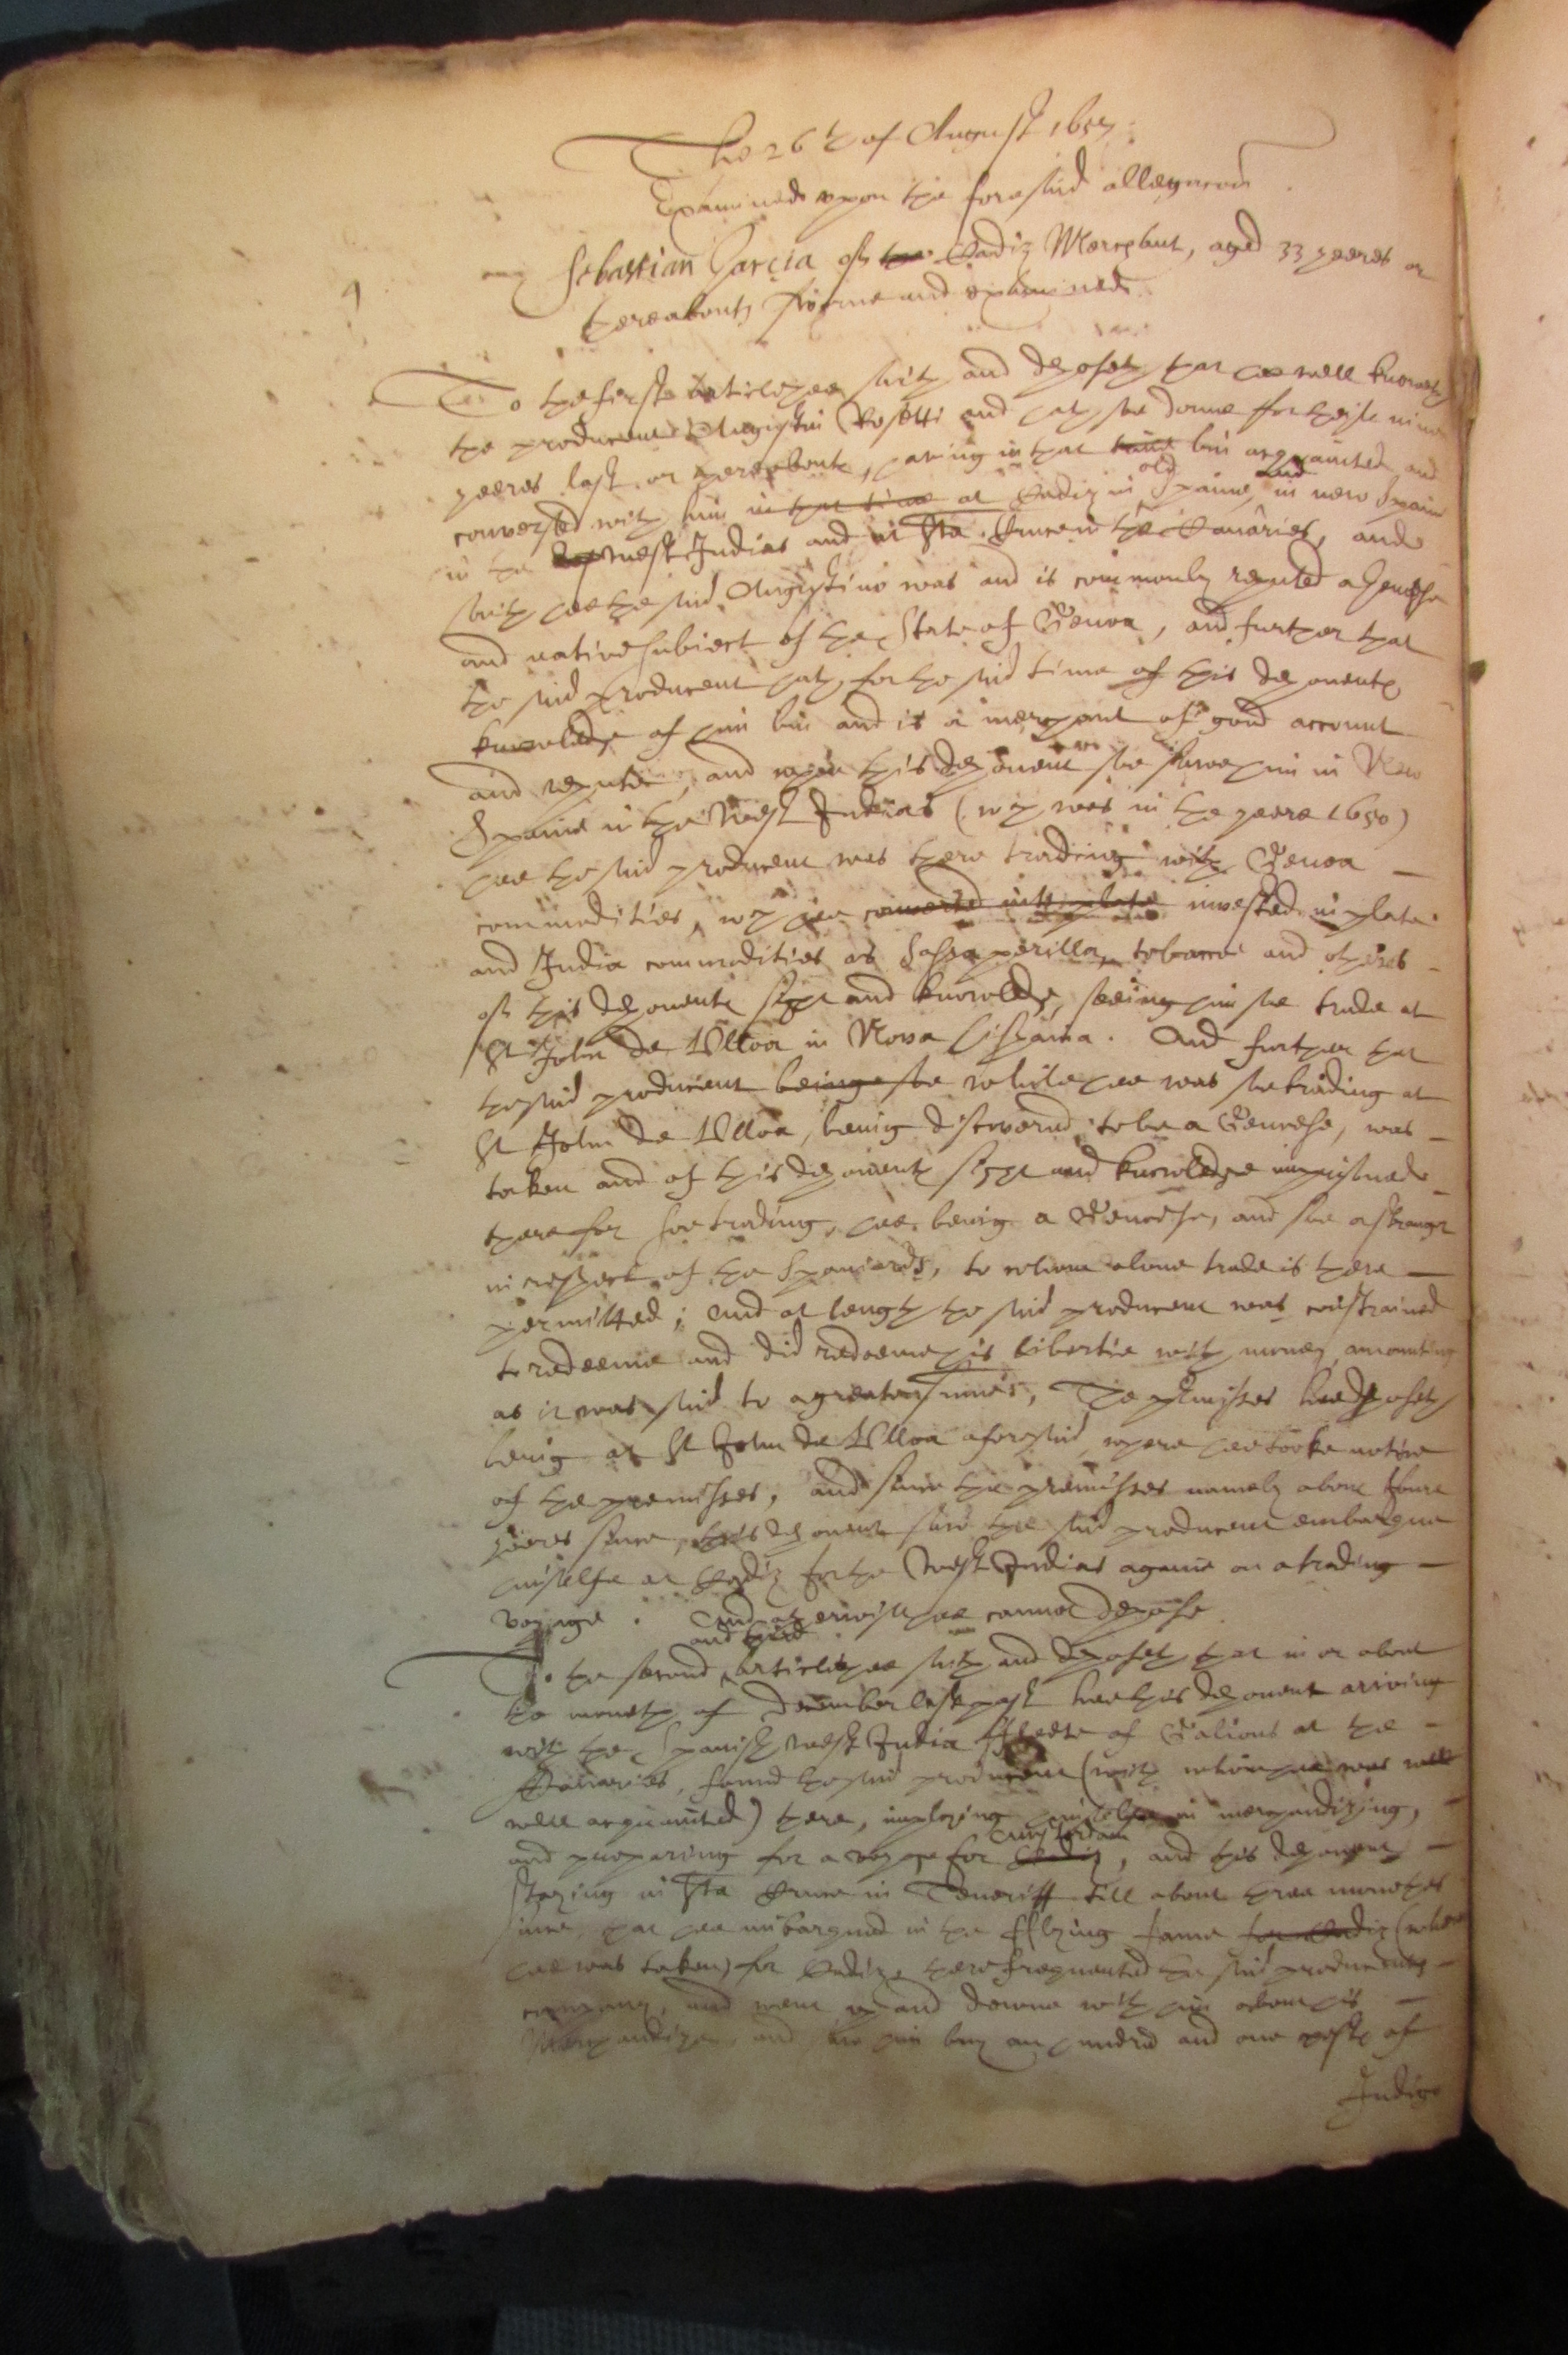 The 26th of August 1657.
Examined upon the foresaid allegacon
Sebastian Garcia of the Cadiz Merchant, aged 33 yeeres or
thereabouts sworne and examined.
To the first article hee saith and deposeth that hee well knoweth
the producent Augustin Rosetti and hath soe donne for theise nine
yeeres last or thereabouts, having in that time bin acquainted and
conversed with him in that time at Cadiz in old Spaine, and in new Spaine
in the West Indias and at Sta Cruce in the Canaries, and
saith hee the said Augustino was and is commonly reputed a Genoese
and native subiect of the State of Genoa, and further that
the said producent hath for the said time of this deponents
knowledge of him bin and is a merchant of good account
and repute, and when this deponent soe sawe him in New
Spaine in the West Indias (wch was in the yeere 1650)
hee the said producent was there trading with Genoa
commodities, wch hee converted into plate invested in plate
and India commodities as Salsaperilla, tobaccoe and others
of this deponents sight and knowledge, seeing him soe trade at
St John de Ulloa in Nova Hispania. And further that
the said producent being soe while hee was soe trading at
St John de Ulloa, being discovered to be a Genoese, was
taken and of this deponents sight and knowledge imprisoned
there for soe trading, hee being a Genoese, and soe a stranger
in respect of the Spaniards, to whome alone trade is there
permitted; and at length the said producent was constrained
to redeeme and did redeeme his libertie with money amounting
as it was said to a greate summe, The premisses hee deposeth
being at St John de Ulloa aforesaid, where hee tooke notice
of the premisses, and since the premisses namely about foure
yeeres since, this deponent saw the said producent embarque
himselfe at Cadiz for the West Indias againe on a trading
voyage. And otherwise hee cannot depose.
and third
To the second article hee saith and deposeth that in or about
the moneth of December last past hee this deponent arriving
with the Spanish West India ffleete of Galions at the
Canaries, found the said producent (with whom hee was well
well acquainted) there, imploying himselfe in merchandizing,
Amsterdam
and preparing for a voyage for Cadiz, and this deponent
staying in Sta Cruce in Teneriff till about three monethes
since, that hee imbarqued in the fflying fame for Cadiz (where
hee was taken) for Cadiz, there frequented the said producents
company, and went up and downe with him about his
Merchandize, and saw him buy an hundred and one of
Indico